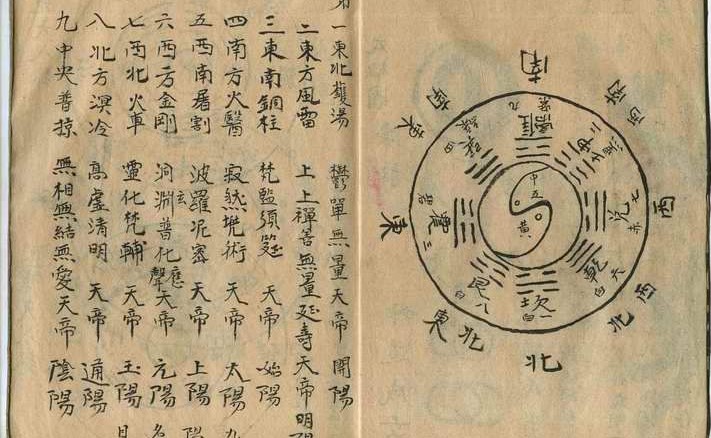 南
西南
西
西北
北
東北
東
東南
離 九
坤 二
兌 七 赤
乾 六 白
坎 一 白
艮 八 白
震 三
四
中五
黃
第一東北鑊湯 鬱單無量天帝 開陽
二東方風雷 上上禪善無量延壽天帝 明
三東南銅柱 梵監須延 天帝 始陽
四南方火醫 寂然梵術 天帝 太陽 九
五西南屠割 波羅泥密 天帝 上陽 陽
六西方金剛 洞玄淵普化應聲天帝 元陽 名
七西北火車 靈化梵輔 天帝 玉陽
八北方溟冷 高虛清明 天帝 通陽
九中央普掠 無相無結無愛天帝 陰陽